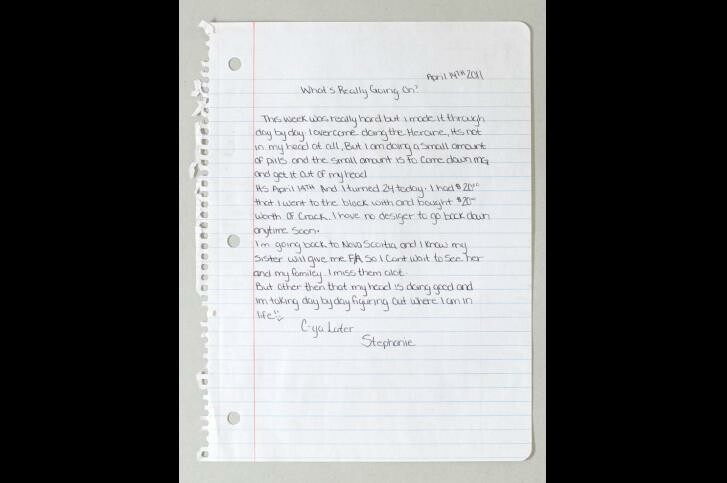 April 14TH 2011
What's Really Going On?
This week was really hard but i made it through
day by day. I overcome doing the Heroine, its not
in my head at all, But I am doing a small amount
of pills and the small amount is to come down mg
and get it out of my head
Its April 14TH And I turned 24 today. I had $20.00
that I went to the block with and bought $20.00
worth of Crack. I have no desiger to go back down
anytime soon.
I'm going back to Nova Scoitia and I know my
sister will give me F/A so I cant wait to see her
and my familey. I miss them alot.
But other then that my head is doing good and
im taking day by day figuring out where I am in
life!!
C-ya Later
Stephanie